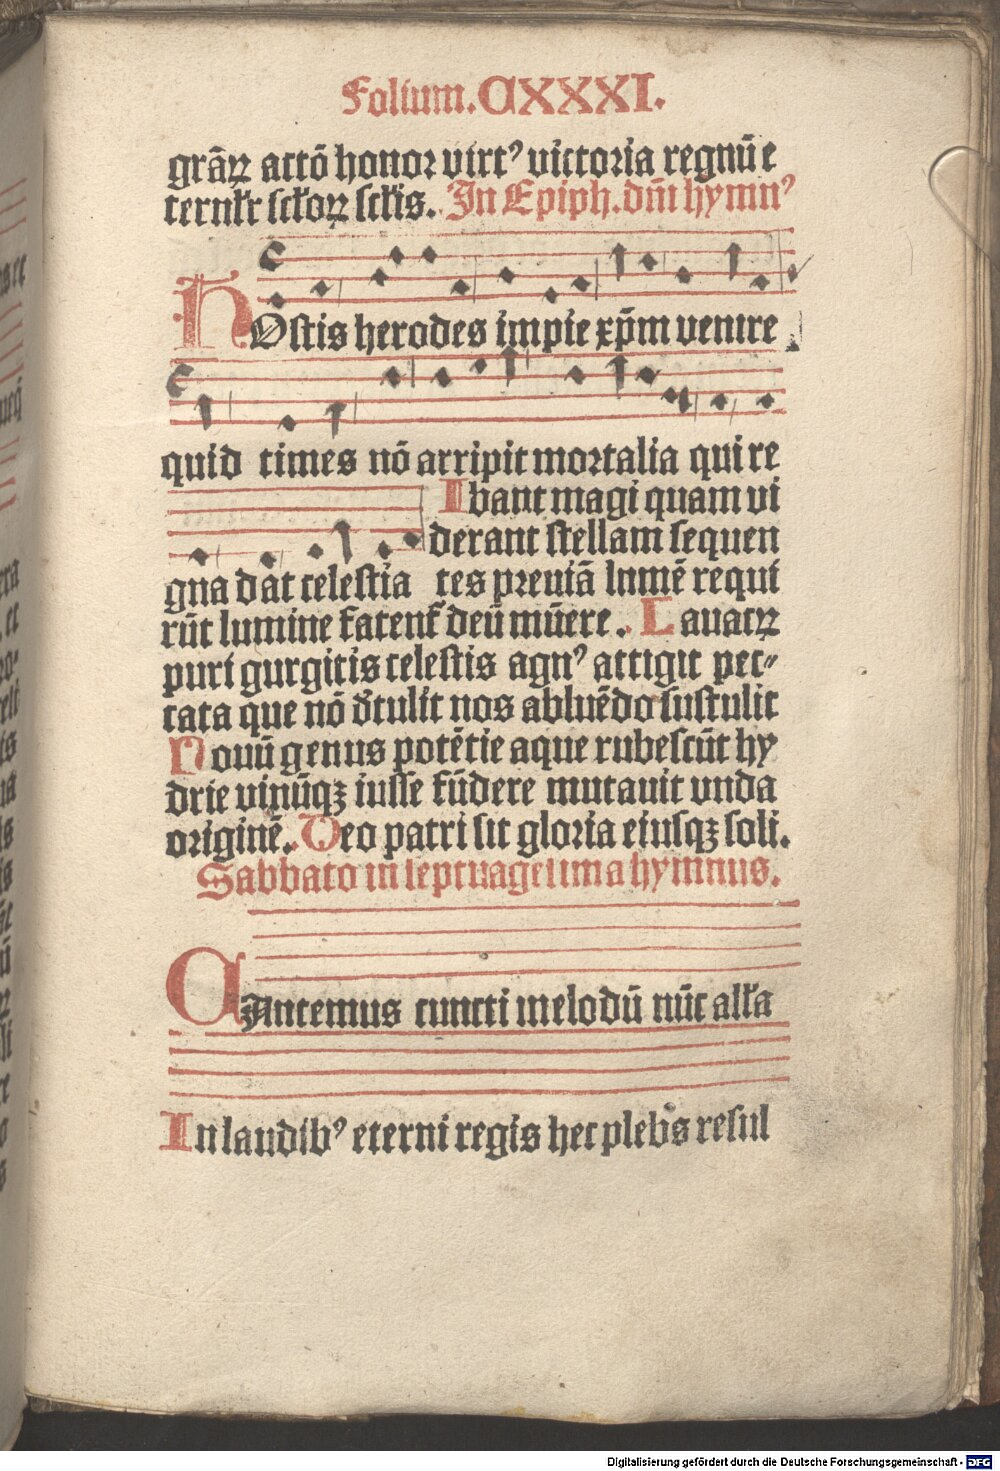 Folium. CXXXI.
grāꝝ actō honor virtꝰ victoria regnū e
In Epiph. dn̄i hymnꝰ
HOstis herodes impie xp̄m venire
quid times nō arripit mortalia qui re
Ibant magi quam vi
derant stellam sequen
gna dat celestia tes preuiā lumē requi
rūt lumine fatent deū mūere. Lauacꝝ
puri gurgitis celestis agnꝰ attigit pec-
cata que nō detulit nos abluēdo sustulit
Nouū genus potētie aque rubescūt hy
drie vinūqꝫ iusse fūdere mutauit vnda
originē. Deo patri sit gloria eiusqꝫ soli.
Sabbato in septuagesima hymnus.
CAntemus cuncti melodū nūc alła
In laudibꝰ eterni regis hec plebs resul
Digitalisierung gefördert durch die Deutsche Forschungsgemeinschaft - DFG